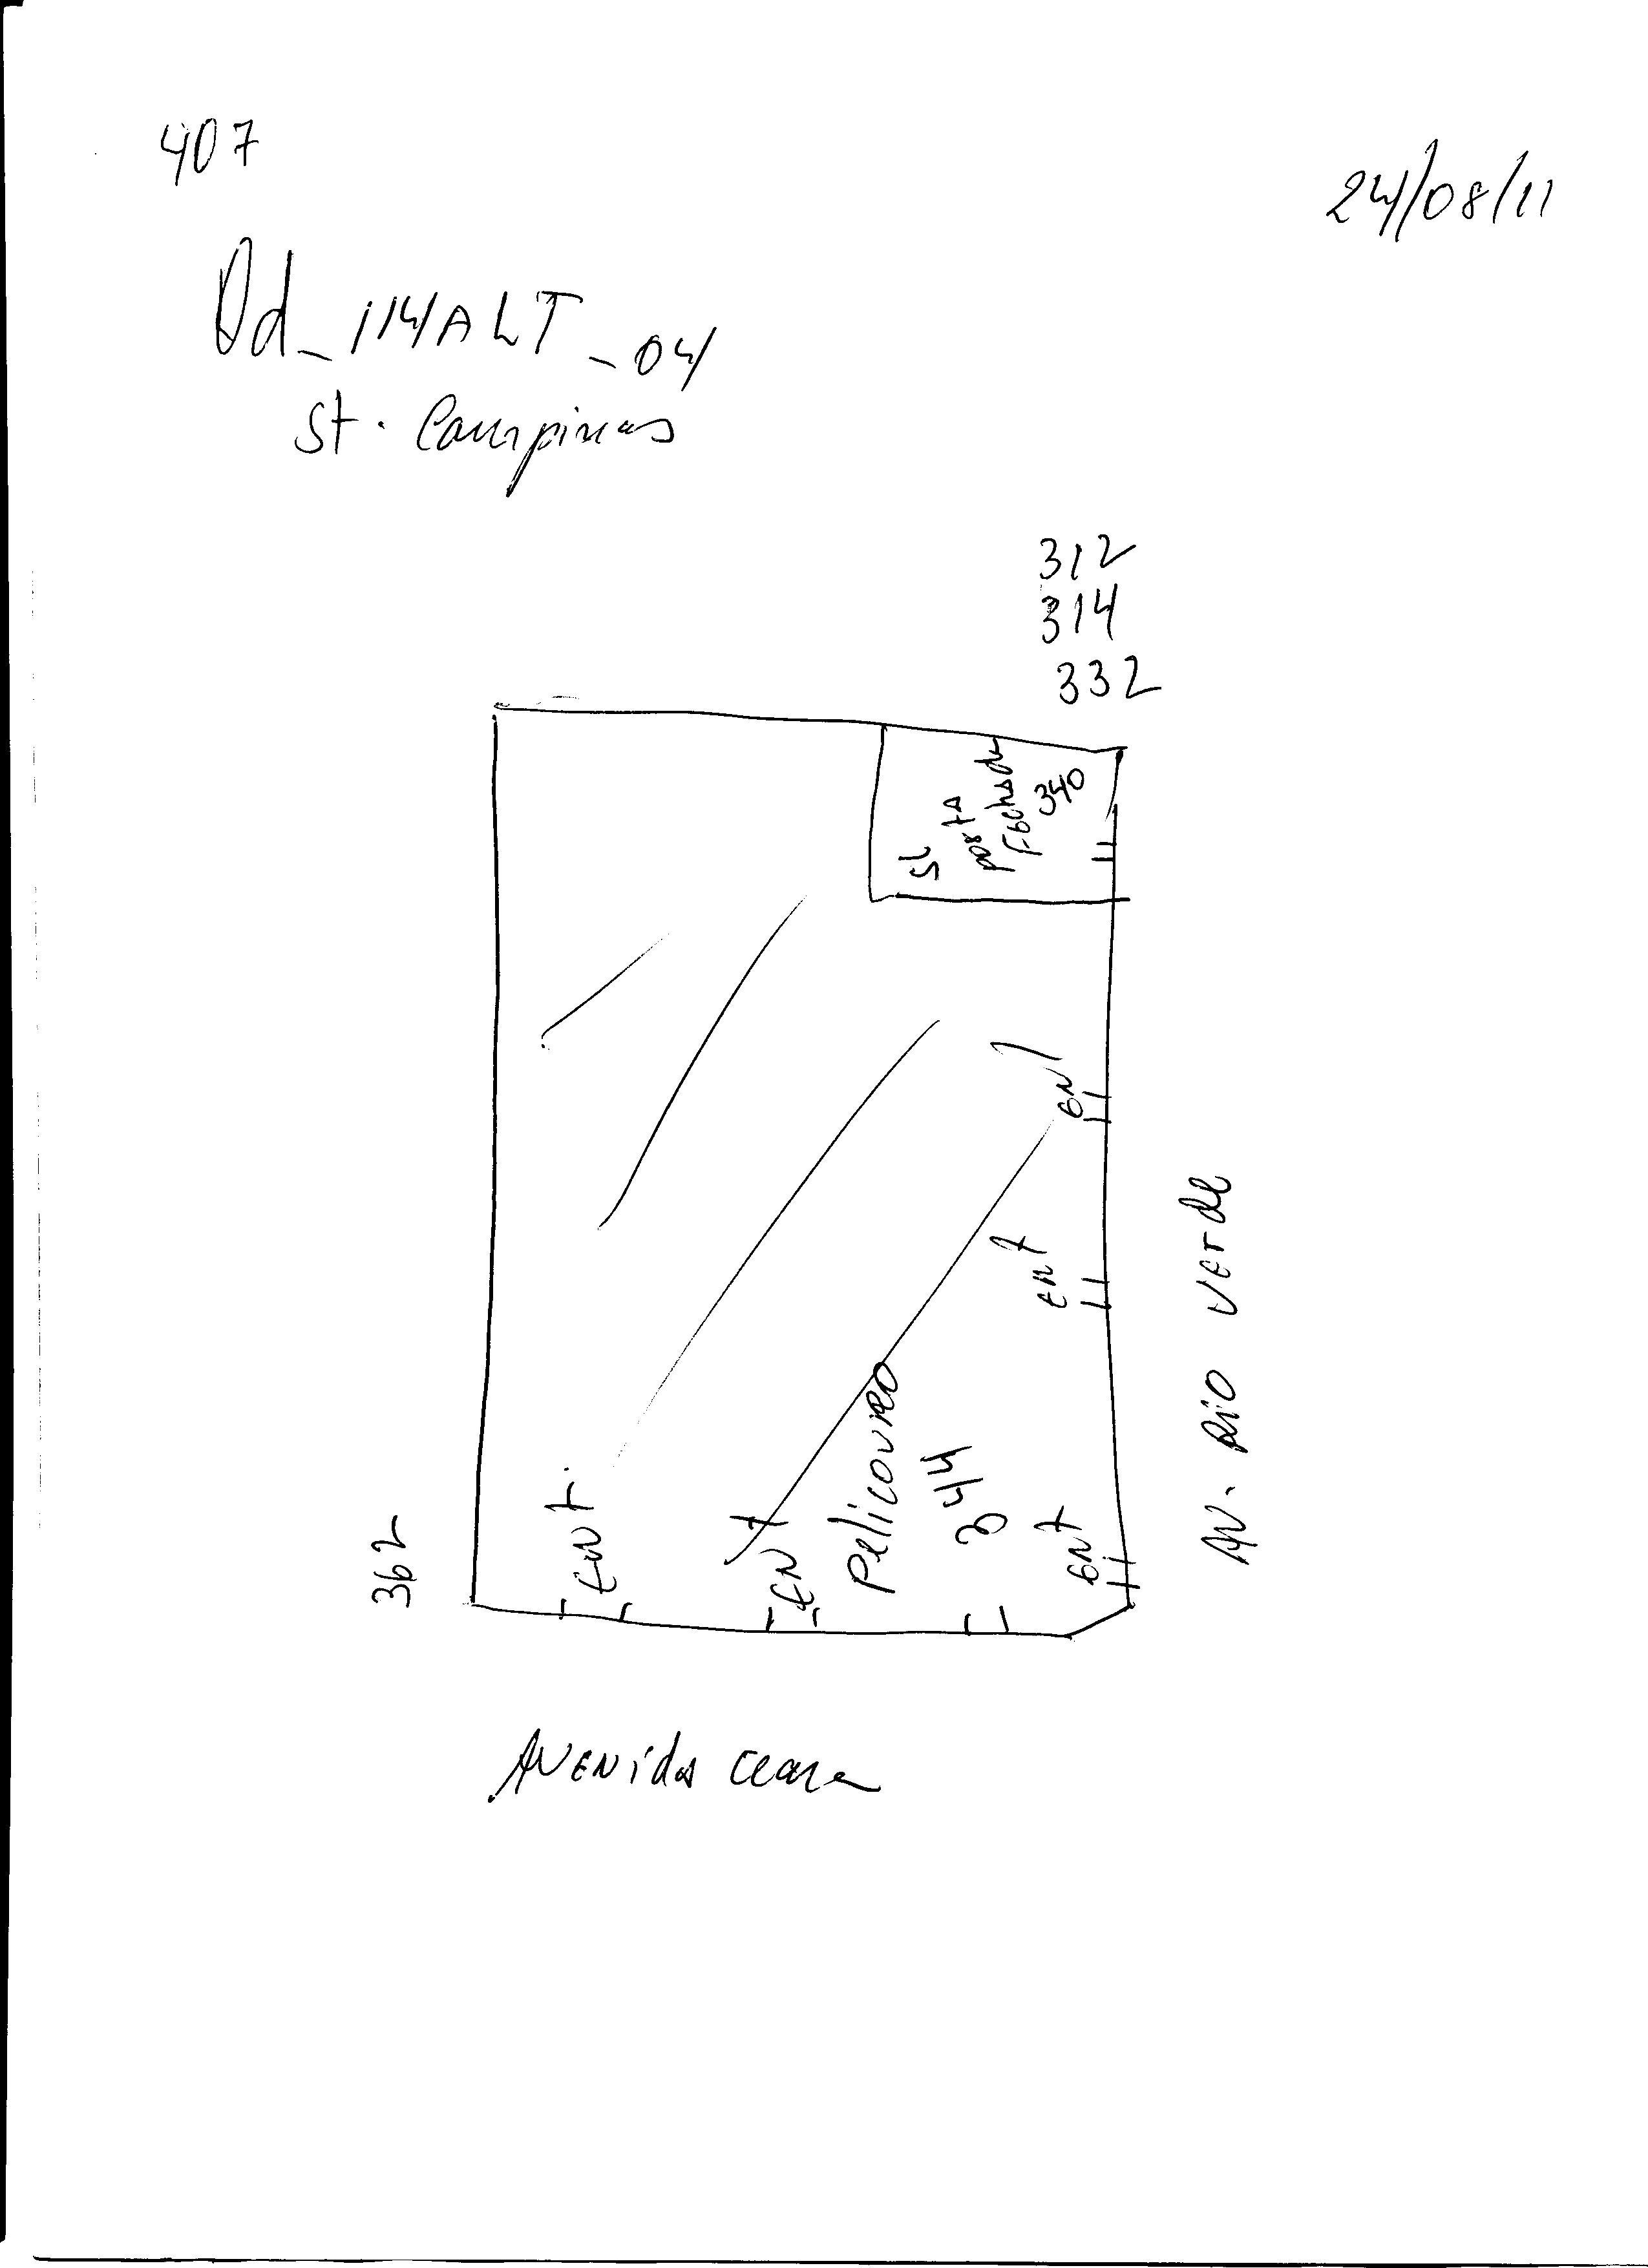 407
24/08/11
Qd_114A LT_04
St. Campinas
312
314
332
SL
porta
Fechada
340
ent
ent
AV. RIO Verde
Pelicouro
344
ent
ENT
ENT
362
AVENida Ceara